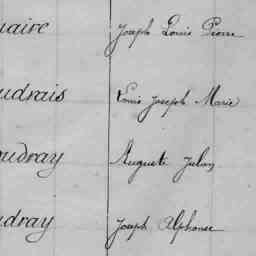 uaire Joseph Louis Pierre
udrais Louis Joseph Marie
udray Auguste Julien
dray Joseph Alphonse